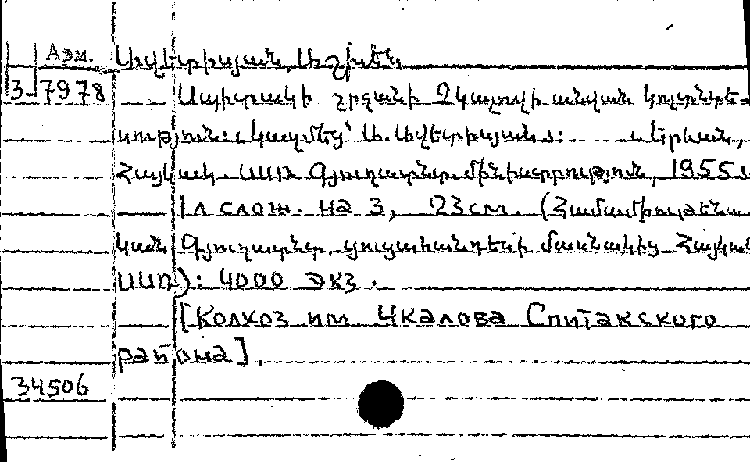 Арм. Ավետիսյան, Աշխեն
3-7978 Սպիտակի շրջանի Չկալովի անվան կոլտնտե-
սություն: Կազմեց՝ Ա. Ավետիսյանը: Երևան,
Հայկակ. ՍՍՌ Գյուղատնտ. մինիստրություն, 1955.
1л слож. на 3, 23см. (Համամիութենա
կան Գյուղատնտ. ցուցահանդեսի մասնակից Հայկ
ՍՍՌ): 4000 экз.
[Колхоз им Чкалова Спитакского
района].
34506